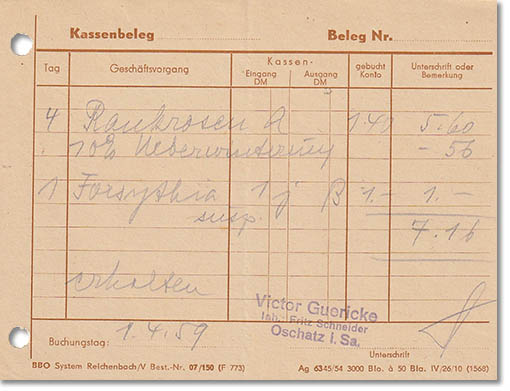 Kassenbeleg Beleg Nr.
Tag Geschäftsvorgang Kassen- Eingang DM Ausgang DM gebucht Konto Unterschrift oder Bemerkung
4 Rankrosen A 1.40 5.60
10% Ueberwinterung - 56
1 Forsythia 1 j B 1.- 1.-
susp.
7.16
erhalten
Victor Guericke
Inh.: Fritz Schneider
Oschatz i. Sa.
Buchungstag: 1.4.59
Unterschrift
BBO System Reichenbach/V Best.-Nr. 07/150 (F 773) Ag 6345/54 3000 Blo. à 50 Bla. IV/26/10 (1568)